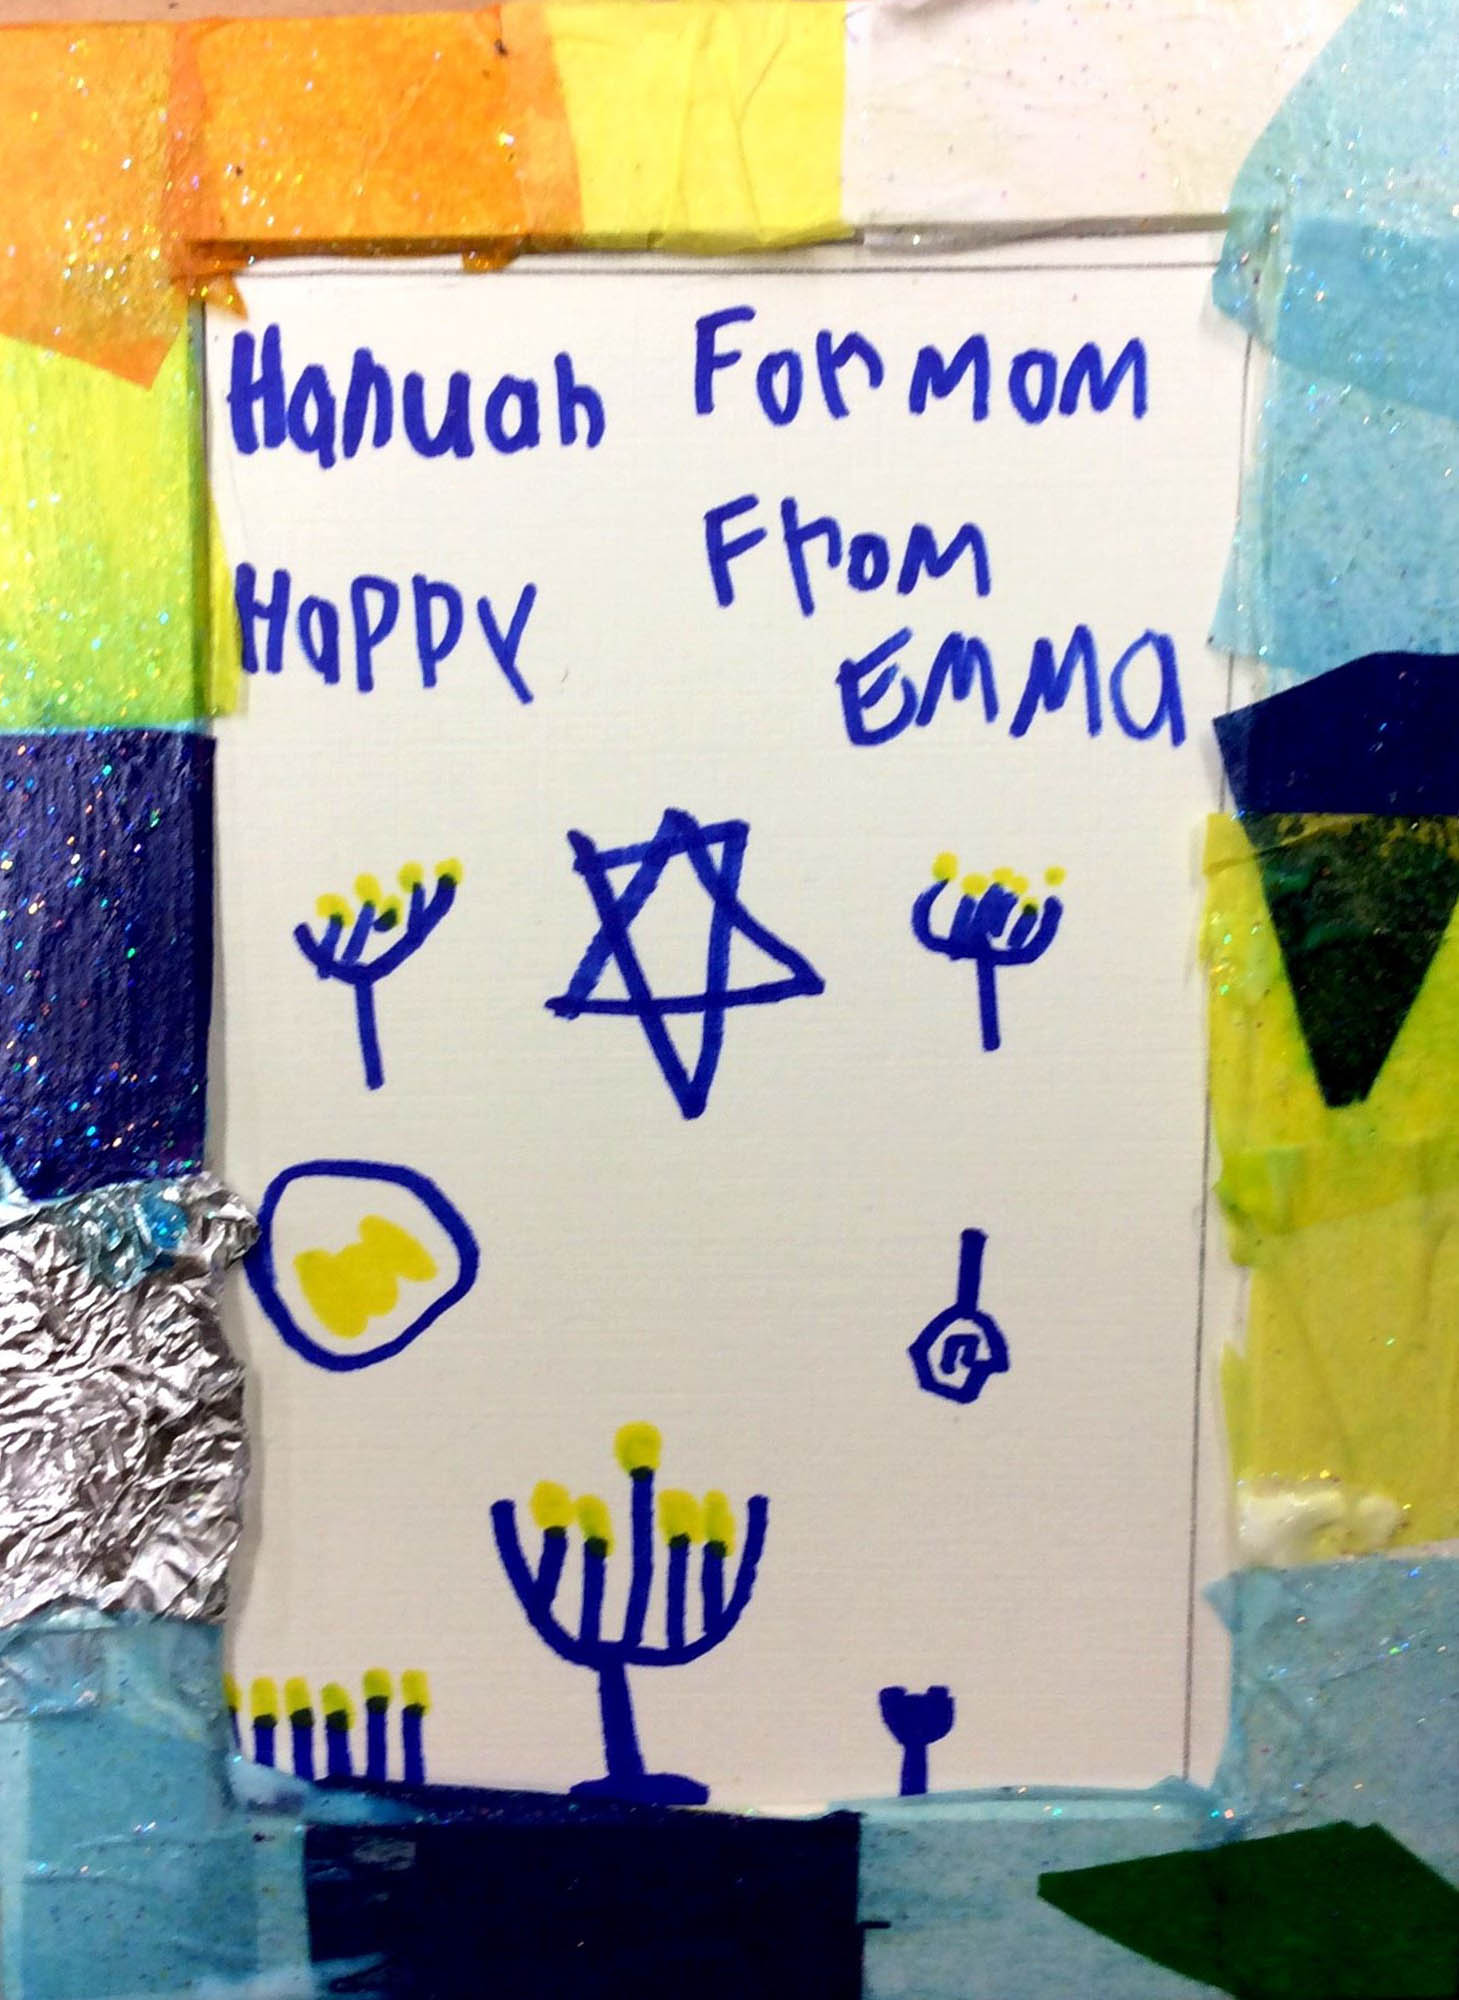 Hanuah
Happy
For mom
From
Emma